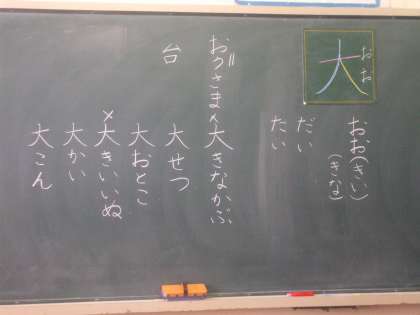 大
おお
おお(きい)
(きな)
だい
たい
おうさま
×大きなかぶ
大せつ
台
大おとこ
×大きいいぬ
大かい
大こん